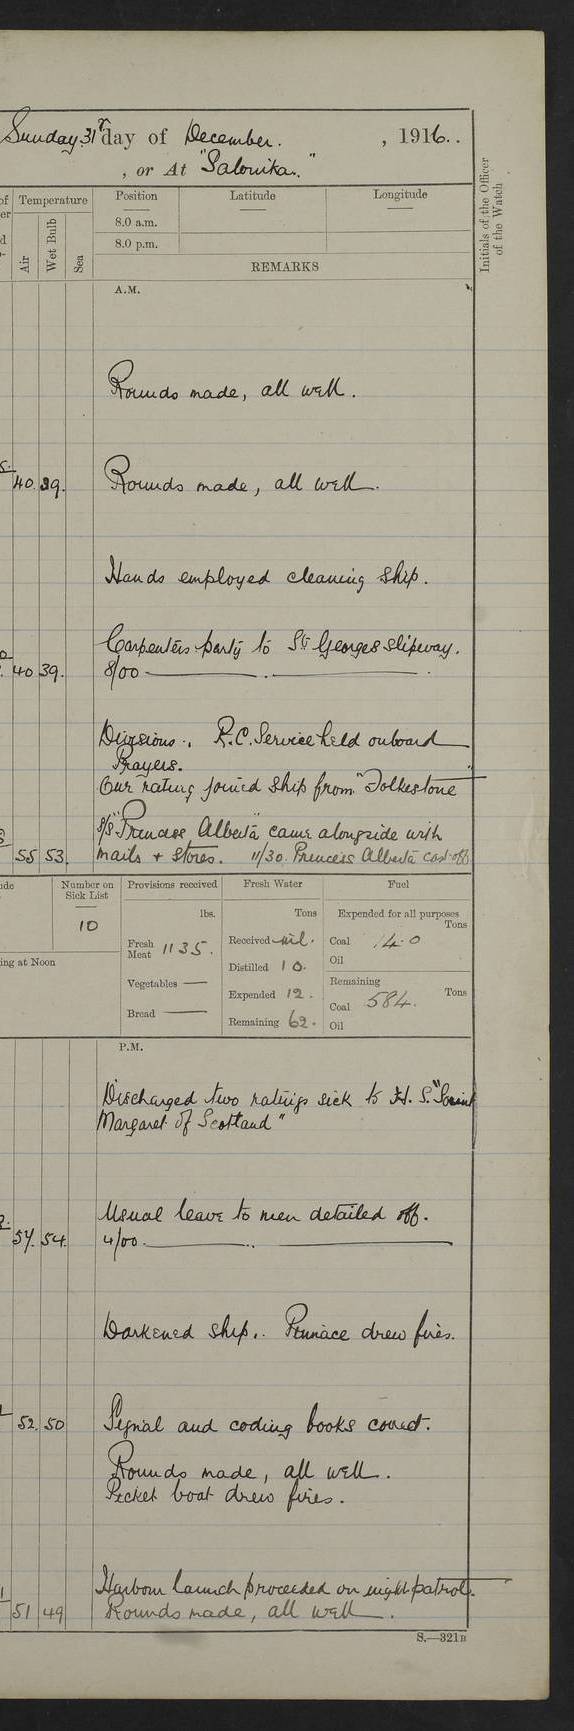 Sunday 31st day of December. , 1916..
, or At "Salonika."
Temperature Position Latitude Longitude
Air Wet Bulb Sea
8.0 a.m.
8.0 p.m.
Initials of the Officer
of the Watch
REMARKS
A.M.
Rounds made, all well.
40 39. Rounds made, all well.
Hands employed cleaning ship.
Carpenters party to St Georges slipway.
40 39. 8/00
Divisions. R.C. Service held onboard
Prayers.
One rating joined ship from "Folkestone"
S/S "Princess Alberta" came alongside with
55 53. mails & stores. 11/30. Princess Alberta cast off
Number on
Sick List
10
ing at Noon
Provisions received
lbs.
Fresh
Meat 1135.
Vegetables —
Bread —
Fresh Water
Tons
Received nil.
Distilled 10.
Expended 12.
Remaining 62.
Fuel
Expended for all purposes
Tons
Coal 14.0
Oil
Remaining
Tons
Coal 584.
Oil
P.M.
Discharged two ratings sick to H.S. "Saint
Margaret of Scotland"
Usual leave to men detailed off.
57. 54. 4/00
Darkened ship. Pinnace drew fires.
52. 50 Signal and coding books correct.
Rounds made, all well.
Picket boat drew fires.
Harbour launch proceeded on night patrol.
51 49 Rounds made, all well.
S.—321B